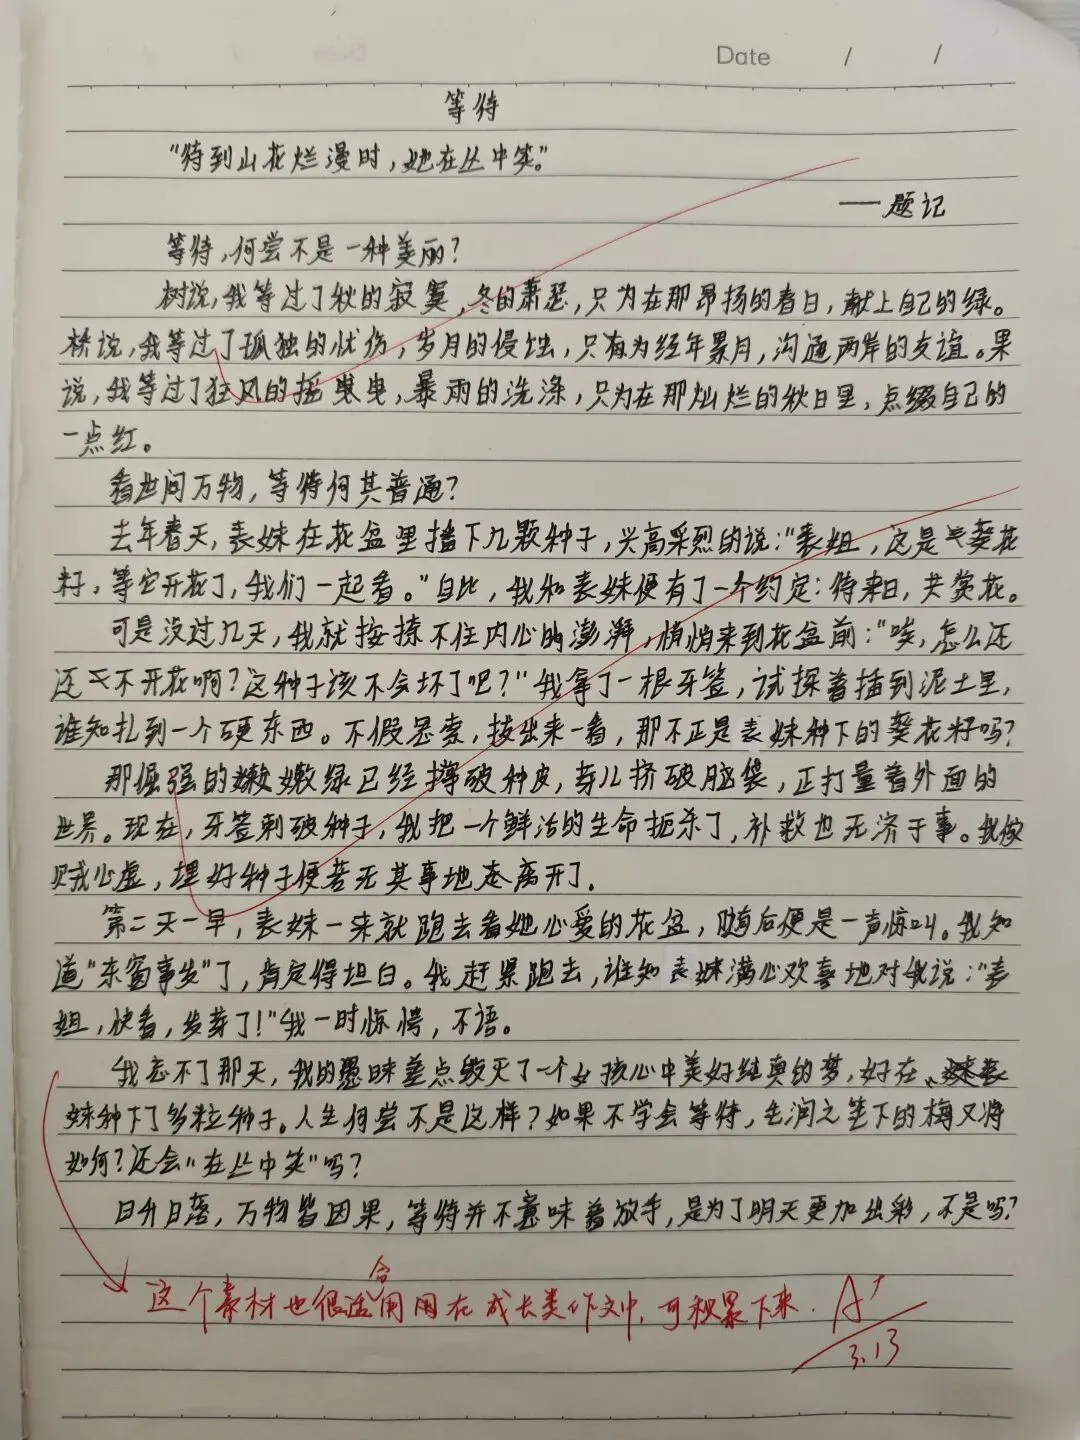 Date / /
等待
“待到山花烂漫时，她在丛中笑。”
——题记
等待，何尝不是一种美丽？
树说，我等过了秋的寂寞，冬的萧瑟，只为在那昂扬的春日，献上自己的绿。
桥说，我等过了孤独的忧伤，岁月的侵蚀，只有为经年累月，沟通两岸的友谊。果
说，我等过了狂风的摇曳，暴雨的洗涤，只为在那灿烂的秋日里，点缀自己的
一点红。
看世间万物，等待何其普通？
去年春天，表妹在花盆里播下几颗种子，兴高采烈的说：“表姐，这是葵花
籽，等它开花了，我们一起看。”自此，我和表妹便有了一个约定：待来日，共赏花。
可是没过几天，我就按捺不住内心的澎湃，悄悄来到花盆前：“唉，怎么还
还不开花啊？这种子该不会坏了吧？”我拿了一根牙签，试探着插到泥土里，
谁知扎到一个硬东西。不假思索，拔出来一看，那不正是表妹种下的葵花籽吗？
那倔强的嫩绿已经撑破种皮，芽儿挤破脑袋，正打量着外面的
世界。现在，牙签刺破种子，我把一个鲜活的生命扼杀了，补救也无济于事。我做
贼心虚，埋好种子便若无其事地走离开了。
第二天一早，表妹一来就跑去看她心爱的花盆，随后便是一声惊叫。我知
道“东窗事发”了，肯定得坦白。我赶紧跑去，谁知表妹满心欢喜地对我说：“表
姐，快看，发芽了！”我一时惊愕，不语。
我忘不了那天，我的愚昧差点毁灭了一个女孩心中美好纯真的梦，好在表
妹种下了多粒种子。人生何尝不是这样？如果不学会等待，毛润之笔下的梅又将
如何？还会“在丛中笑”吗？
日升日落，万物皆因果，等待并不意味着放手，是为了明天更加出彩，不是吗？
这个素材也很适合用在成长类作文中，可积累下来． A+
3.13